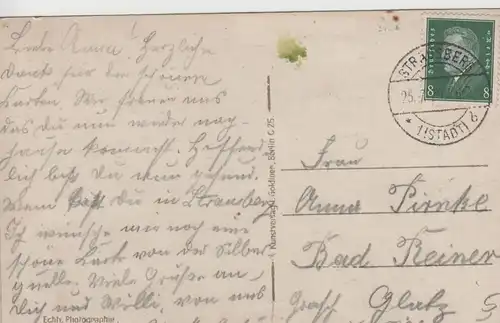 Liebe Anna! Herzliche
Dank für die schönen
Karten. Wir freuen uns
das du nun wieder nach
hause kommst. Hoffend
lich bist du nun gesund.
Wann bist Du in Strausberg
Ich wünsche mir noch eine
schöne Karte von der Silber
quelle. Viele Grüße an
dich und Willi, von uns
Echte Photographie
Kunstverlag J. Goldiner, Berlin C 25
STRAUSBERG
25.5
* 1 (STADT) b
Deutsches Reich
8 8
Frau
Anna Pirnke
Bad Reiner
Grafsch. Glatz